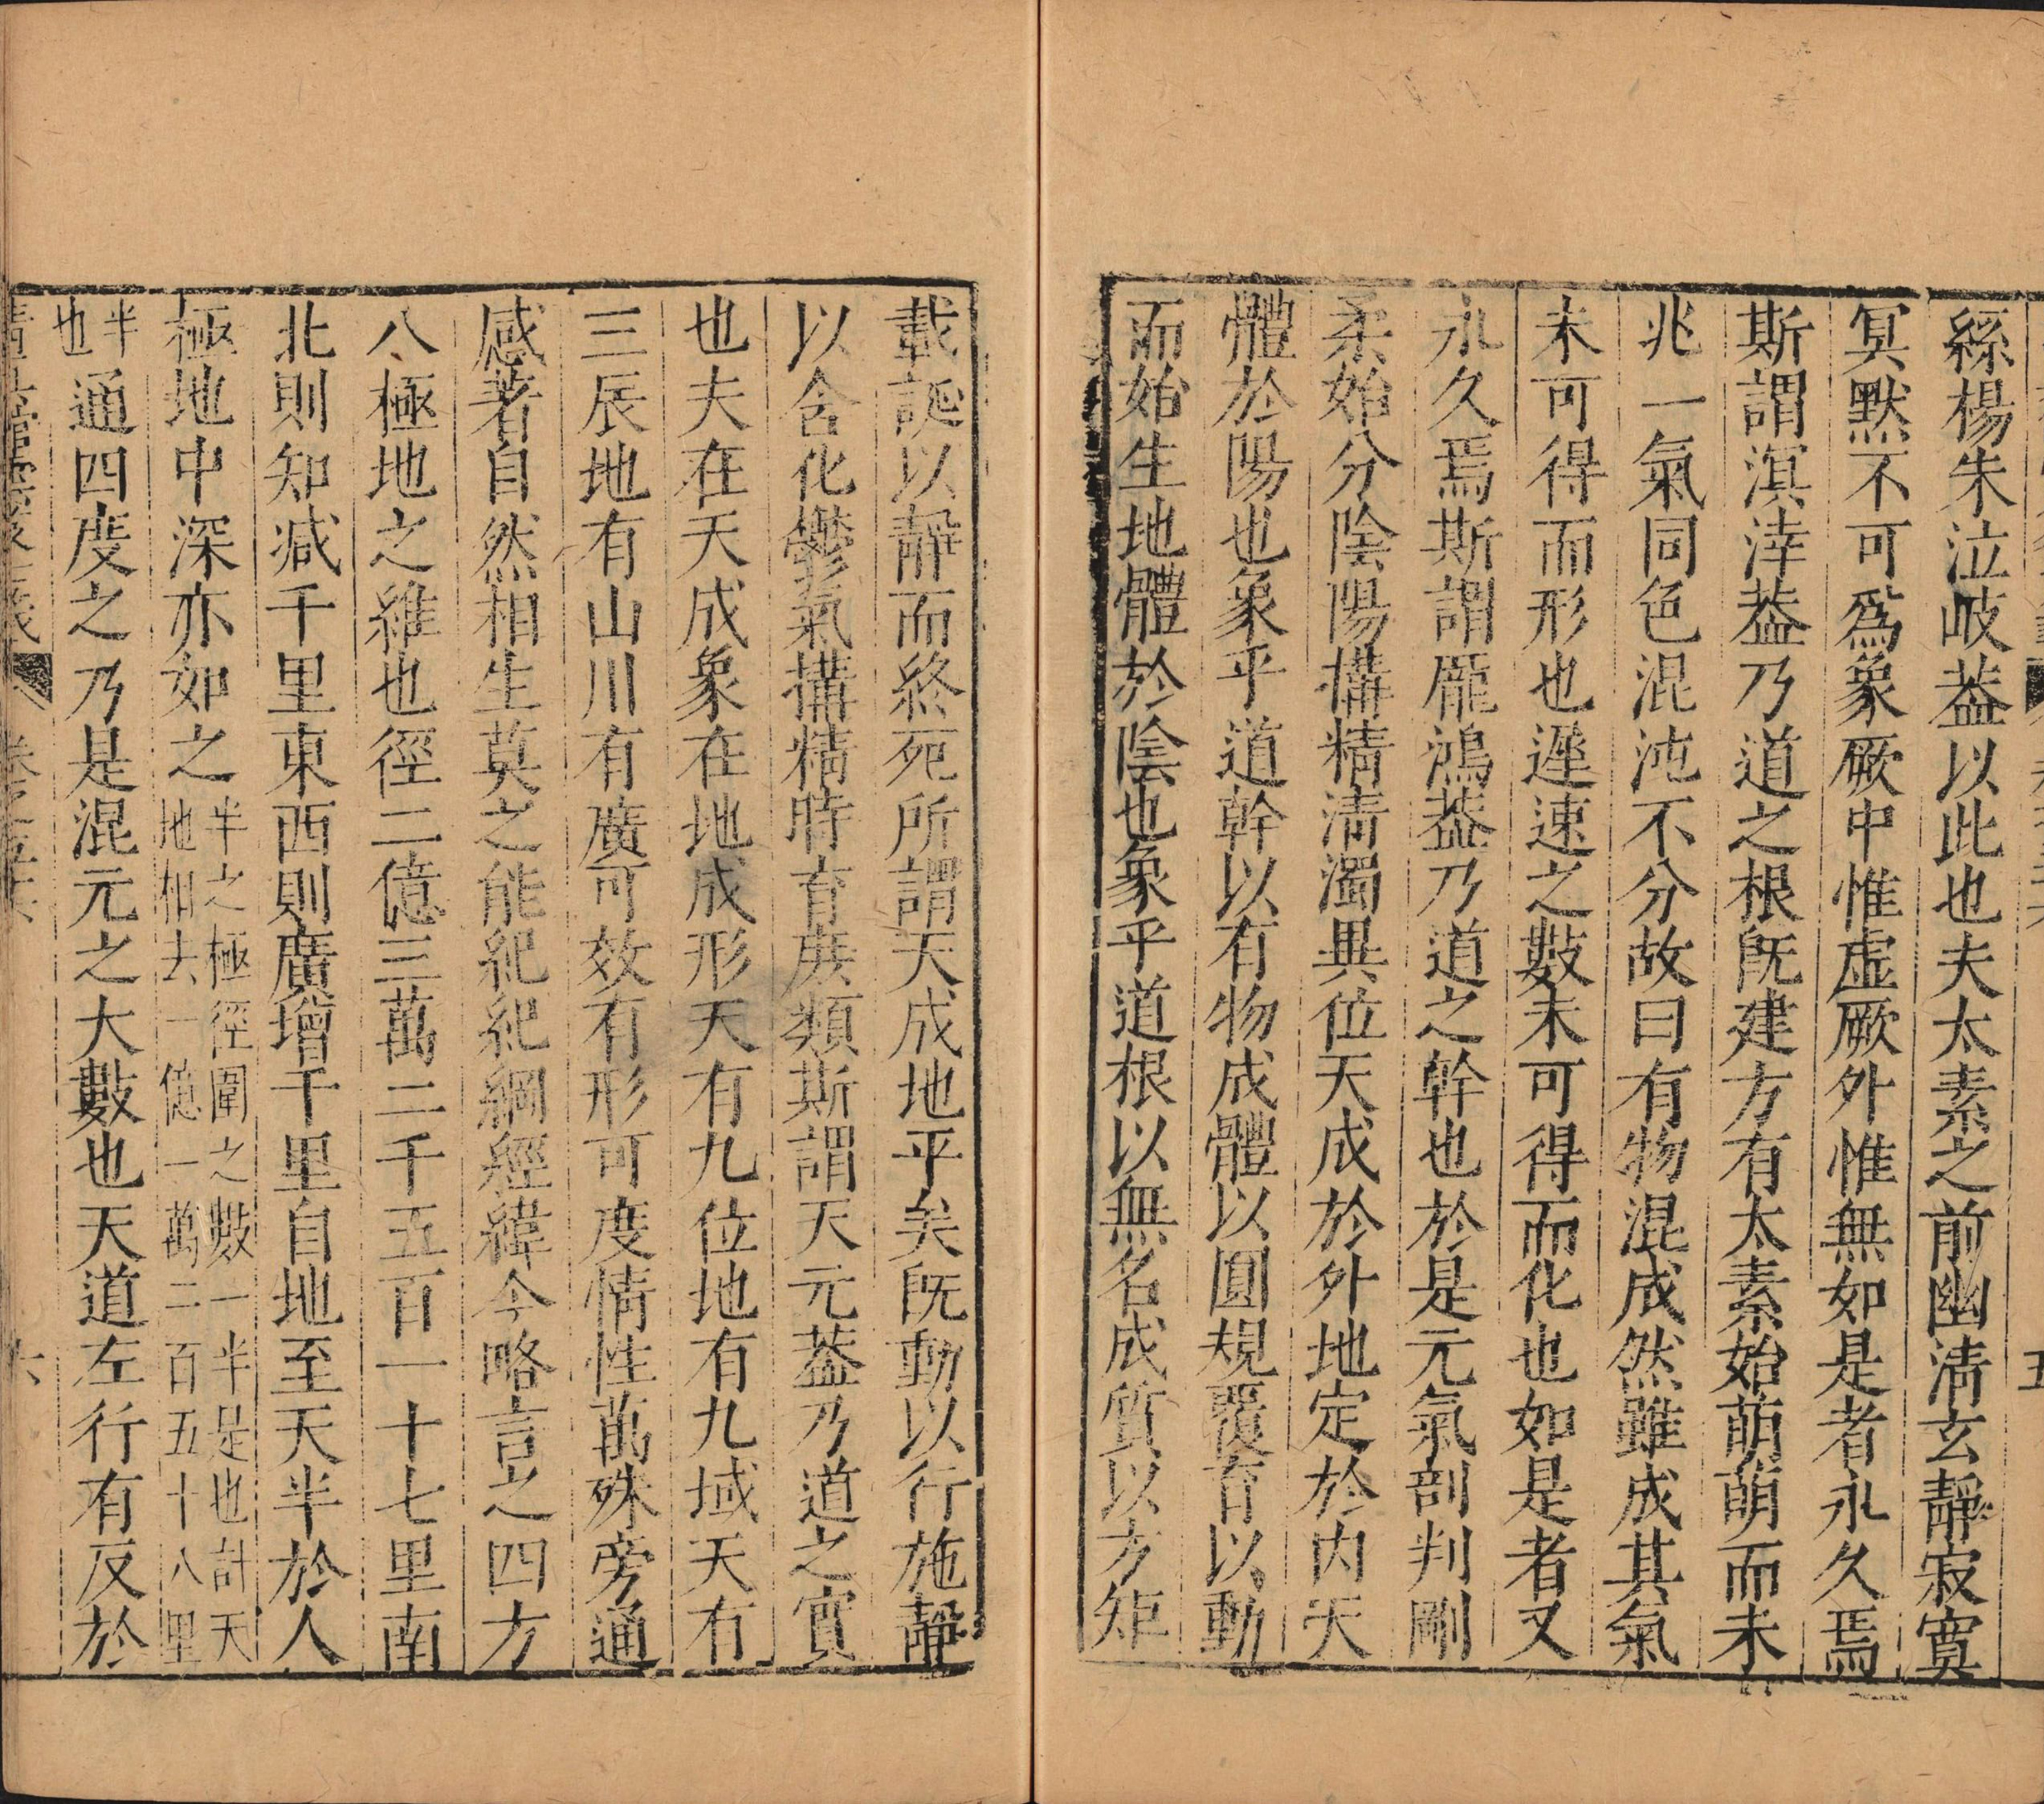 絲楊朱泣岐葢以此也夫太素之前幽淸玄靜寂寞
冥默不可爲象厥中惟虛厥外惟無如是者永久焉
斯謂溟涬葢乃道之根旣建方有太素始萌萌而未
兆一氣同色混沌不分故曰有物混成然雖成其氣
未可得而形也遲速之數未可得而化也如是者又
永久焉斯謂龎鴻葢乃道之幹也於是元氣剖判剛
柔始分陰陽搆精淸濁異位天成於外地定於内天
體於陽也象乎道幹以有物成體以圓規覆育以動
而始生地體於陰也象乎道根以無名成質以方矩
載誕以靜而終死所謂天成地平矣旣動以行施靜
以含化鬱氣搆精時育庶類斯謂天元葢乃道之實
也夫在天成象在地成形天有九位地有九域天有
三辰地有山川有廣可效有形可度情性萬殊旁通
感著自然相生莫之能紀紀綱經緯今略言之四方
八極地之維也徑二億三萬二千五百一十七里南
北則知減千里東西則廣增千里自地至天半於人
極地中深亦如之半之極徑圍之數一半是也計天
地相去一億一萬二百五十八里
半
也通四度之乃是混元之大數也天道左行有反於
六